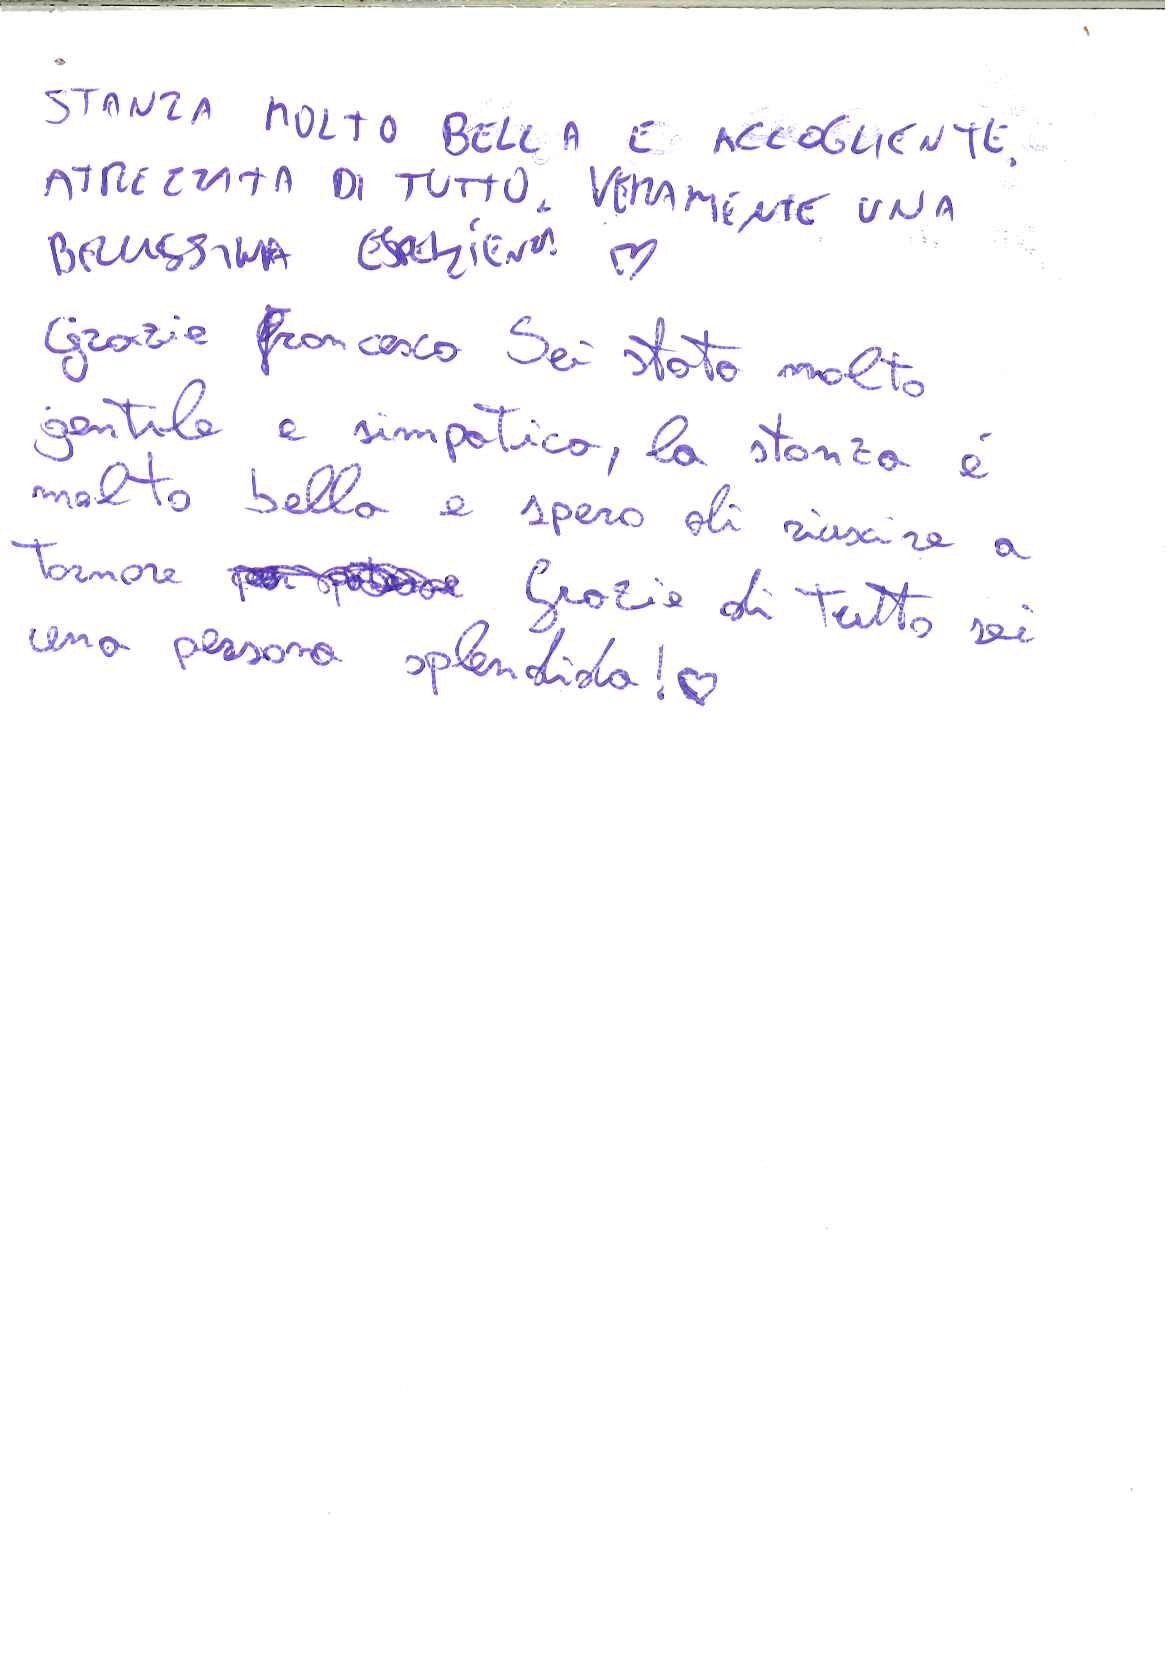 STANZA MOLTO BELLA E ACCOGLIENTE,
ATREZZATA DI TUTTO. VERAMENTE UNA
BELLISSIMA ESPERIENZA ♡
Grazie Francesco Sei stato molto
gentile e simpatico, la stanza é
molto bella e spero di riuscire a
tornare Grazie di tutto sei
una persona splendida! ♡